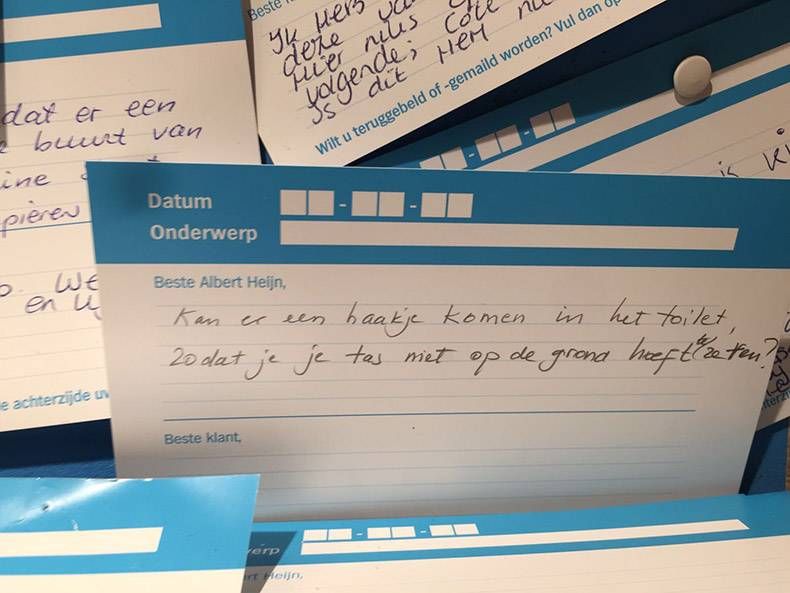 Beste
Ik Heb
deze
Hier niks
volgende;
Is dit HEM
Wilt u teruggebeld of -gemaild worden? Vul dan op
dat er een
buurt van
ine
pieren
WE
en
e achterzijde uw
Datum
Onderwerp
Beste Albert Heijn,
Kan er een haakje komen in het toilet,
zodat je je tas niet op de grond hoeft te zetten?
Beste klant,
erp
ert Heijn,